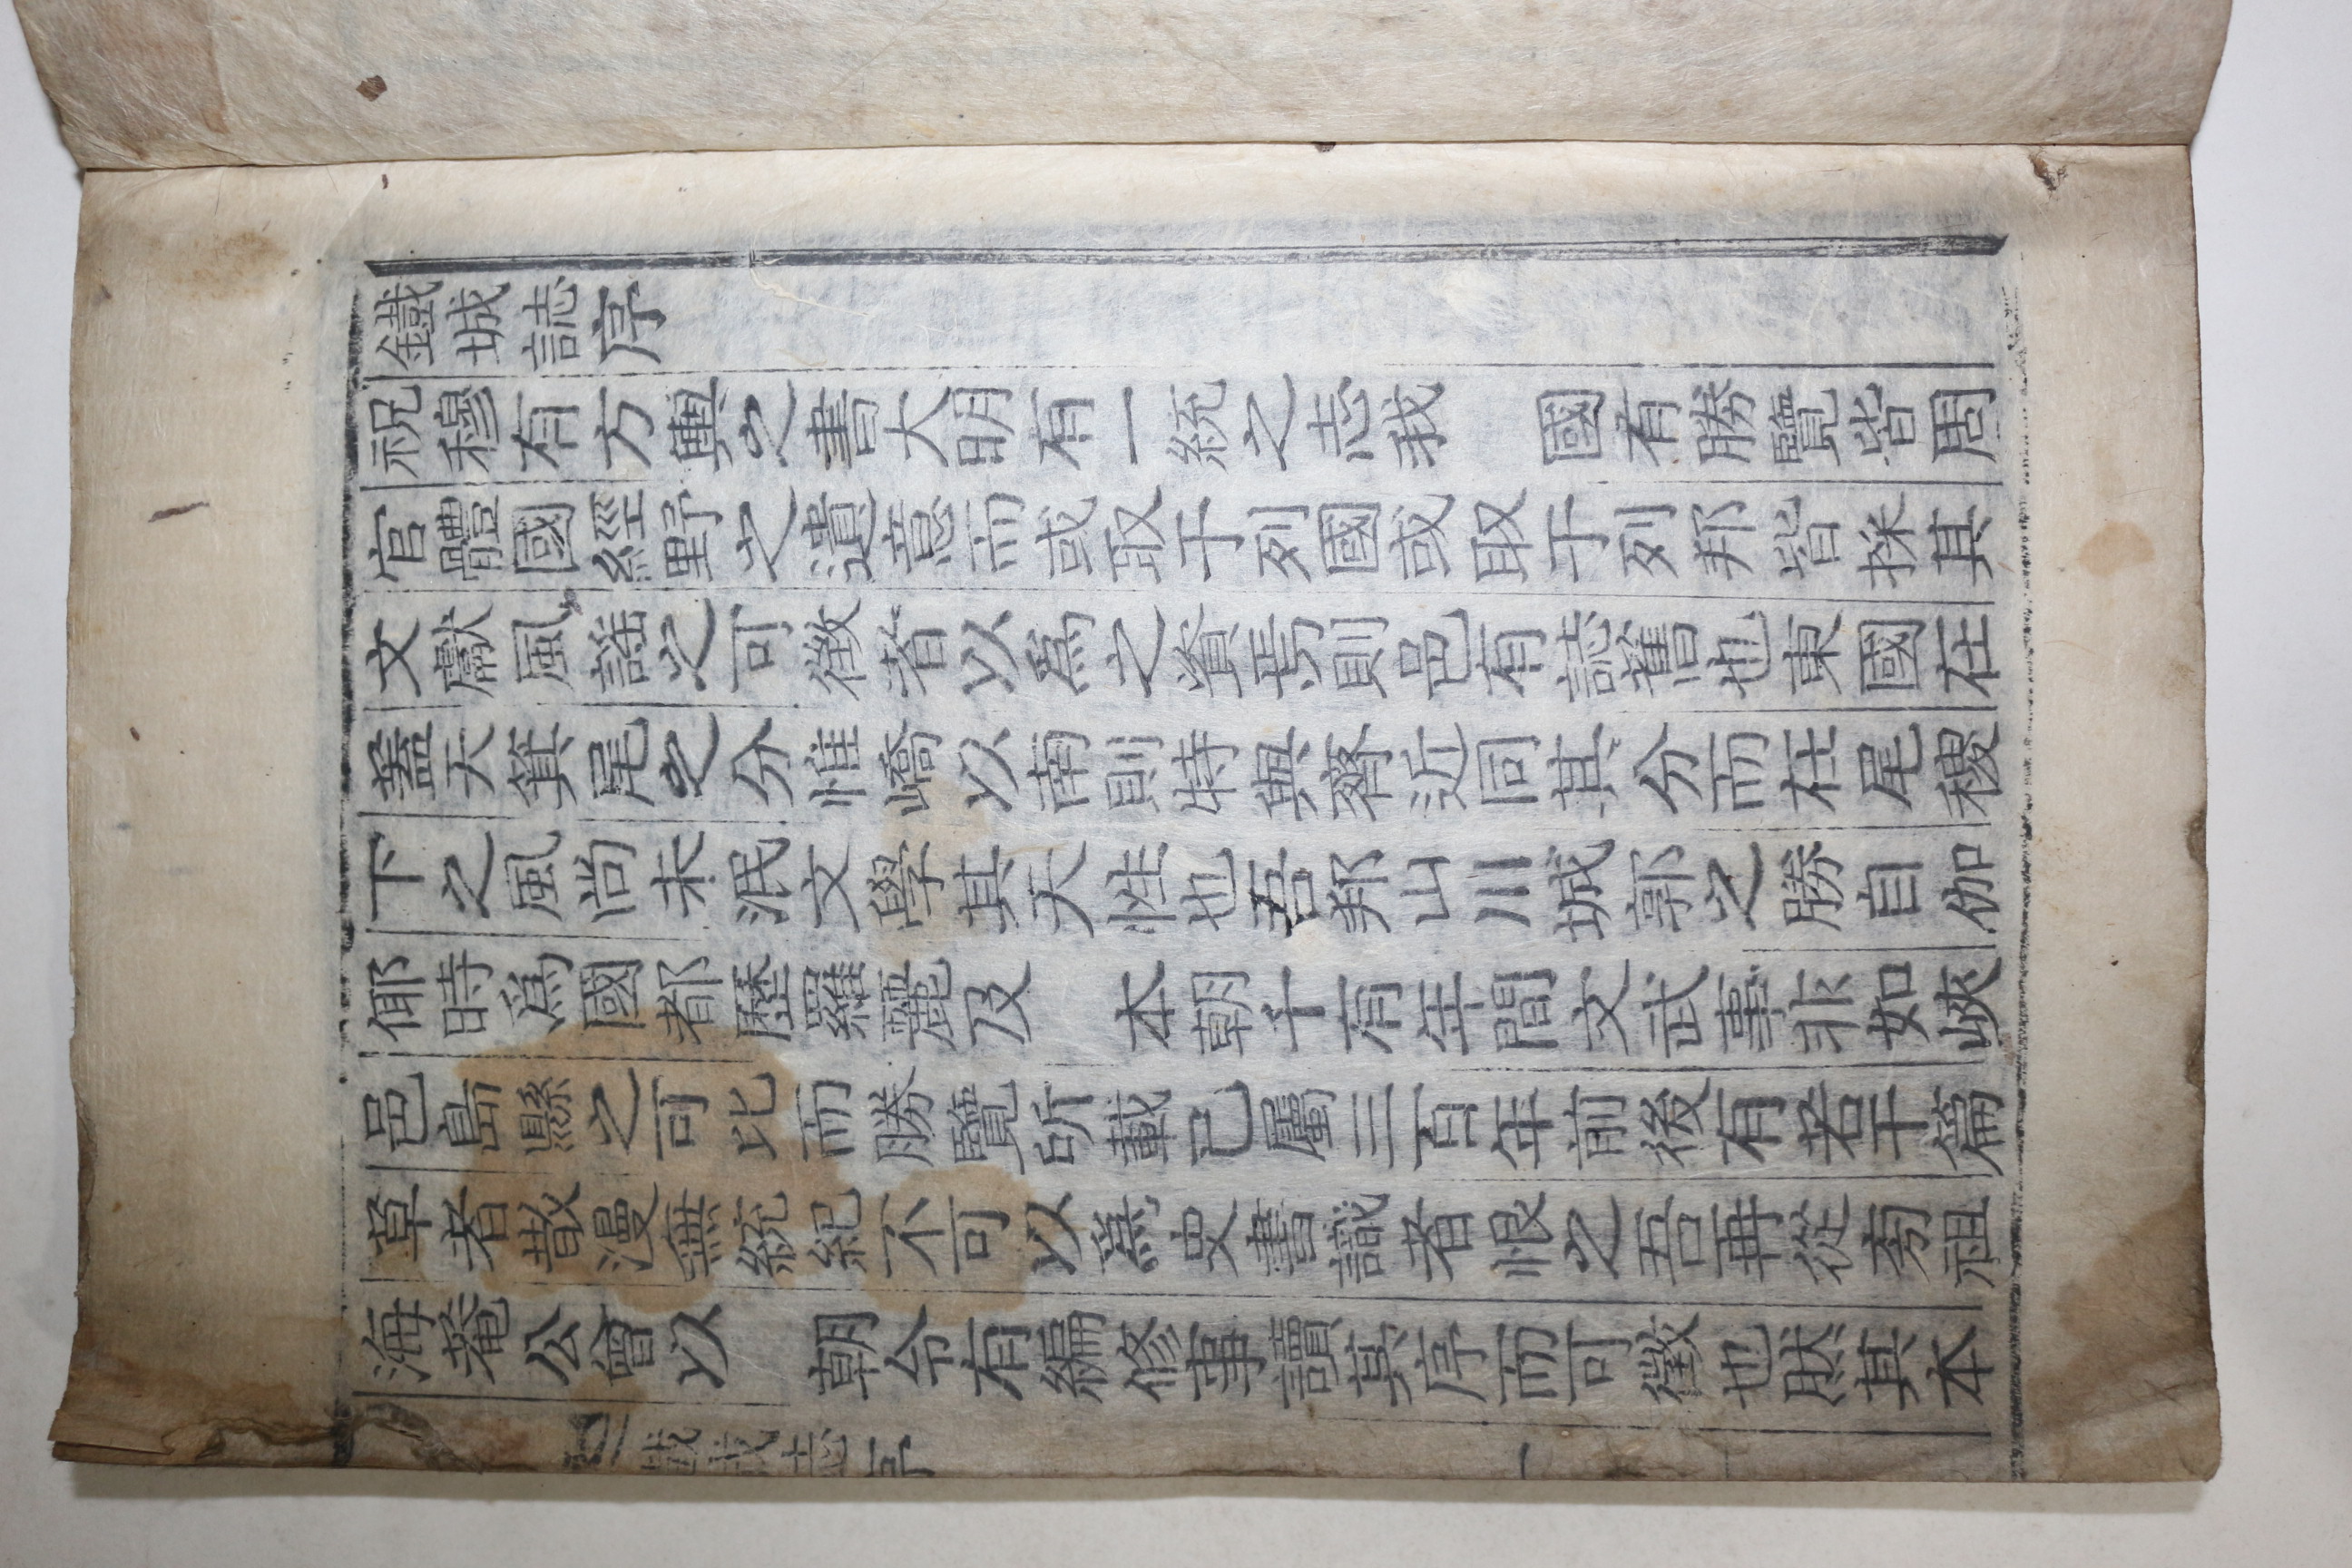 鐵城誌序
祝穆有方輿之書大明有一統之志我　國有勝覽皆周
官體國經野之遺意而或取于列國或取于列邦皆採其
文獻風謠之可徵者以爲之資焉則邑有誌舊也東國在
蓋天箕尾之分惟嶠以南則特與齊近同其分而在尾稷
下之風尚未泯文學其天性也吾邦山川城郭之勝自伽
倻時爲國都歷羅麗及　本朝千有年間文武事非如峽
邑島縣之可比而勝覽所載已屬三百年前後有若干篇
草者散漫無統紀不可以爲史書識者恨之吾再從旁祖
海菴公曾以　朝令有編修事讀其序而可徵也然其本
鐵城誌序
一